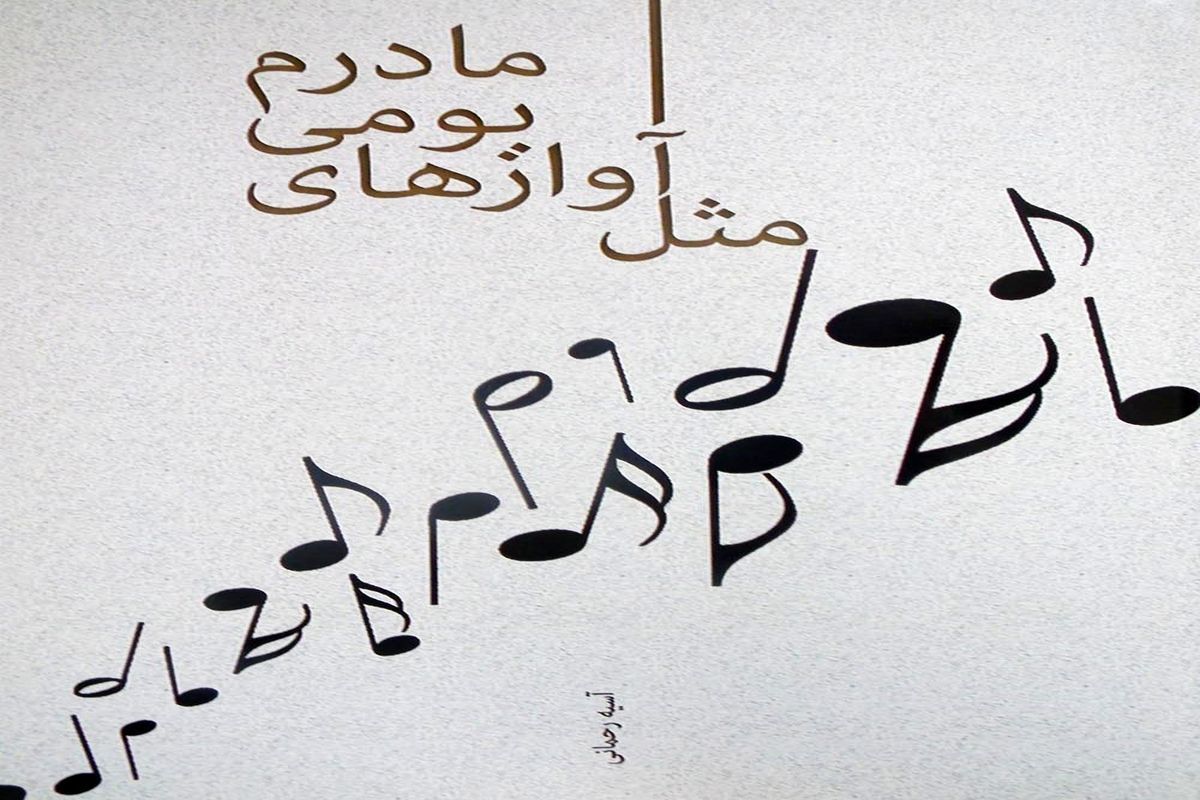 مادرم
بومی
آوازهای
مثل
آسیه رحمانی